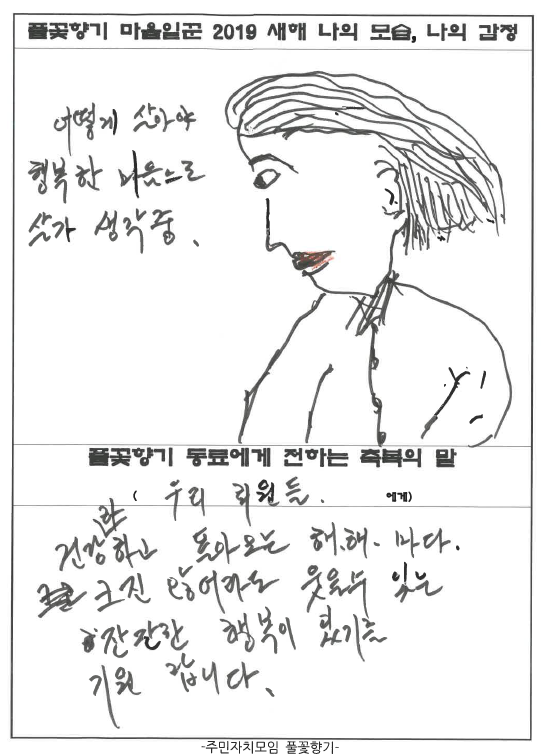 풀꽃향기 마을일꾼 2019 새해 나의 모습, 나의 감정
어떻게 살아야
행복한 마음으로
살가 생각중.
풀꽃향기 동료에게 전하는 축복의 말
( 우리 회원들. 에게)
건강하고 돌아오는 해.해. 마다.
크진 않어라도 웃을수 있는
잔잔한 행복이 있기를
기원 합니다.
-주민자치모임 풀꽃향기-